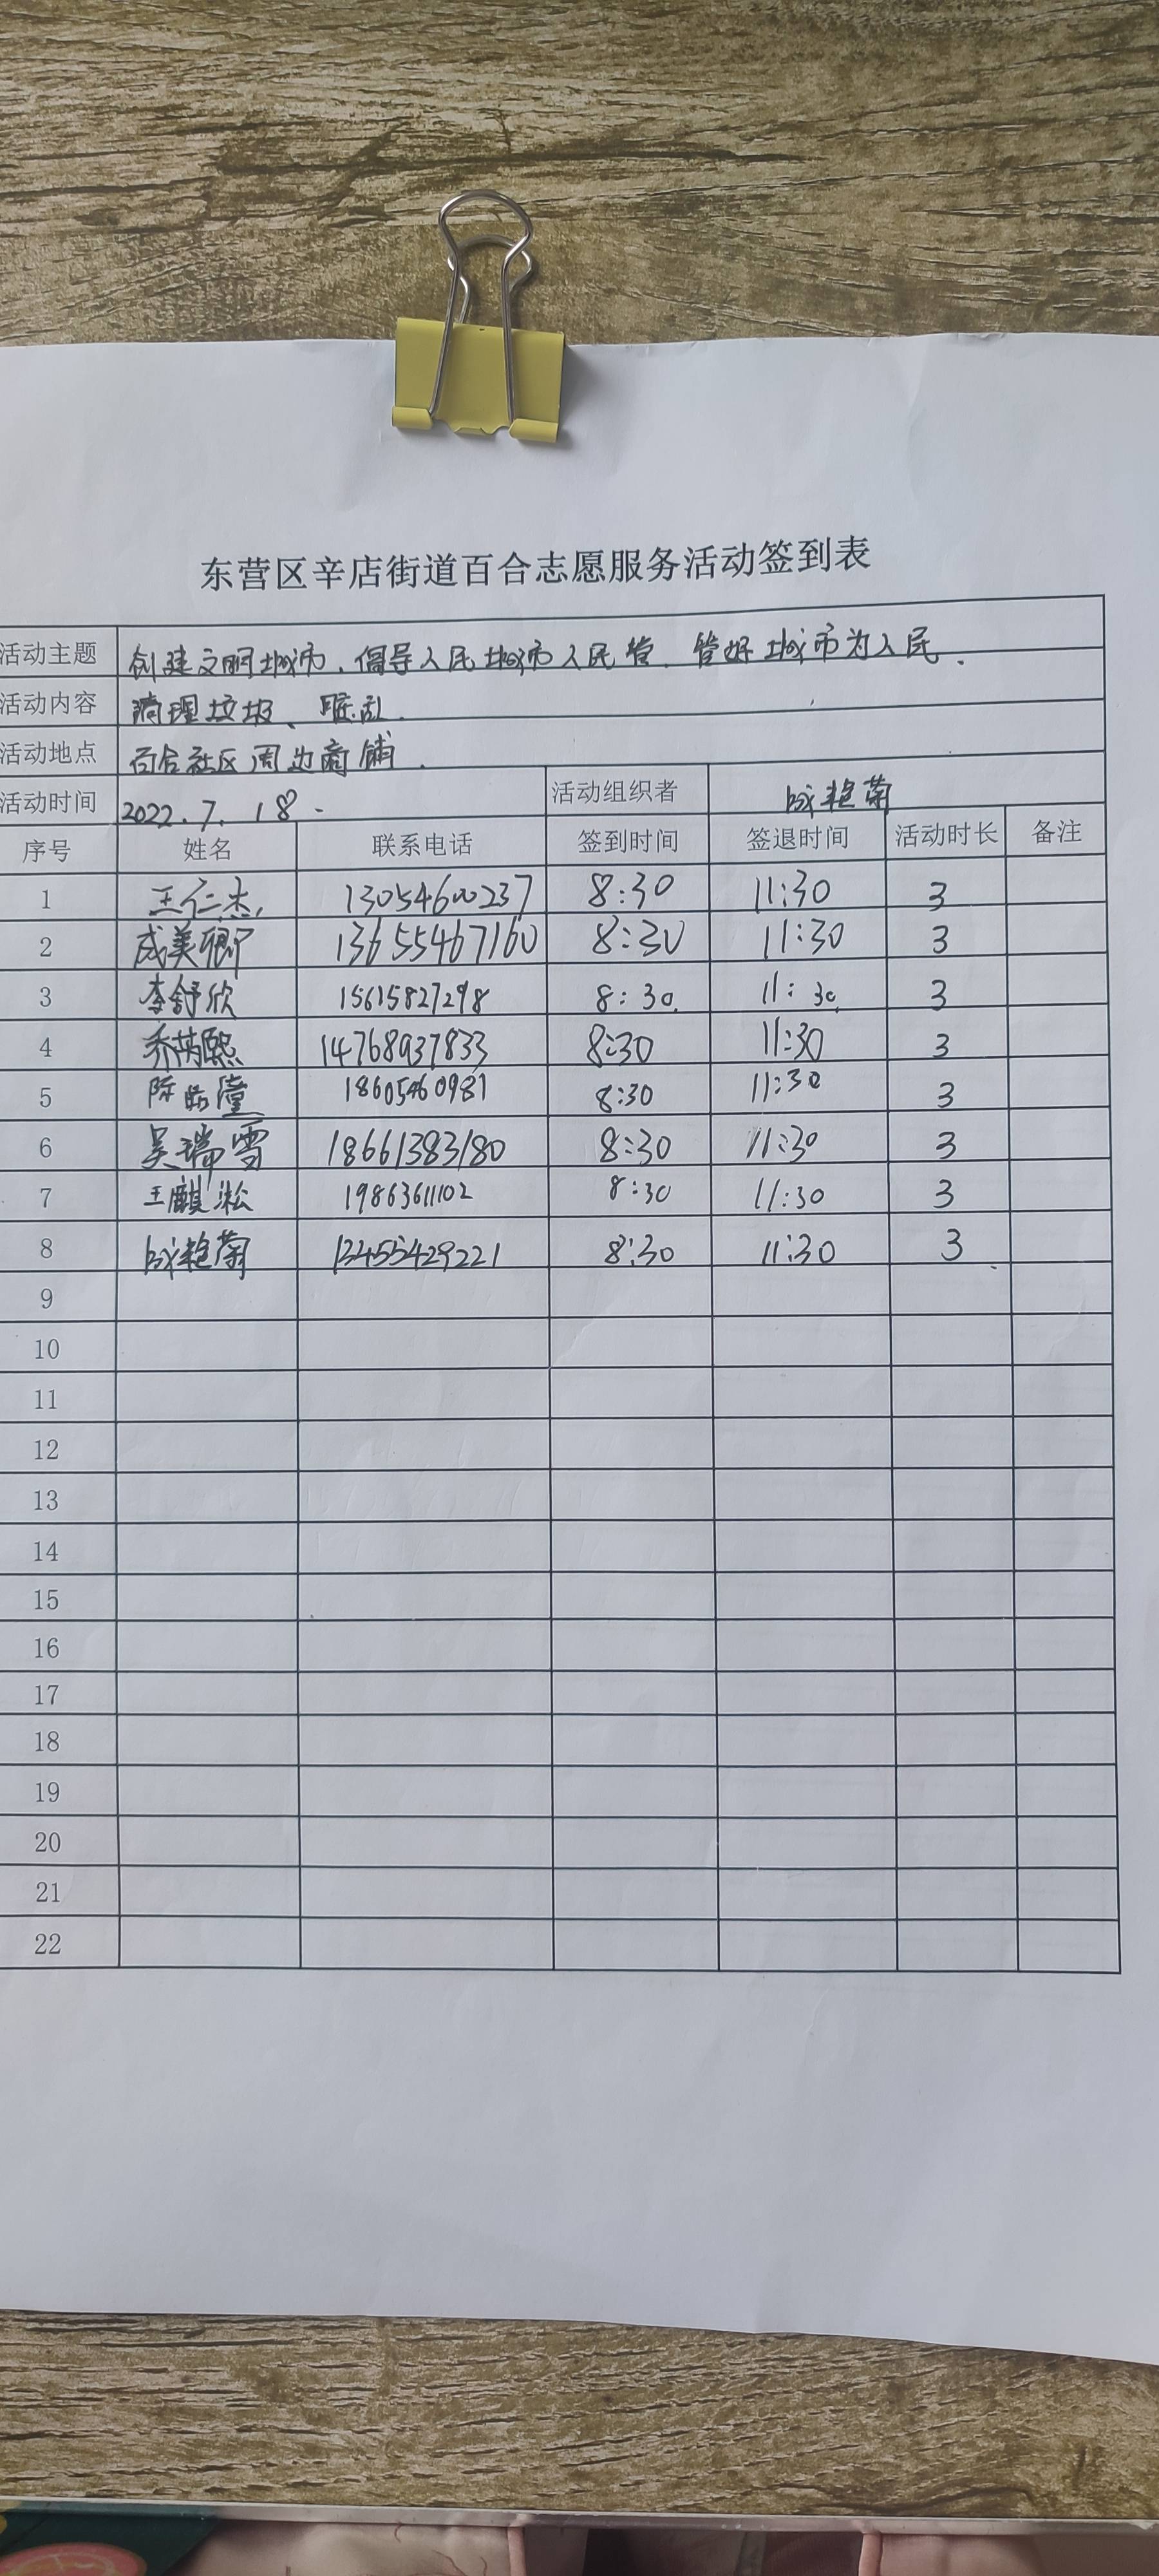 东营区辛店街道百合志愿服务活动签到表
活动主题 创建文明城市、倡导人民城市人民管、管好城市为人民.
活动内容 清理垃圾、
活动地点 百合社区周边商铺.
活动时间 2022.7.18. 活动组织者 艳菊
序号 姓名 联系电话 签到时间 签退时间 活动时长 备注
1 王仁杰 13054600237 8:30 11:30 3
2 成美卿 13655467160 8:30 11:30 3
3 李舒欣 15615827298 8:30 11:30 3
4 乔芮熙 14768937833 8:30 11:30 3
5 陈 潼 18605460981 8:30 11:30 3
6 吴瑞雪 18661383180 8:30 11:30 3
7 王麒淞 19863611102 8:30 11:30 3
8 艳菊 13455429221 8:30 11:30 3
9
10
11
12
13
14
15
16
17
18
19
20
21
22